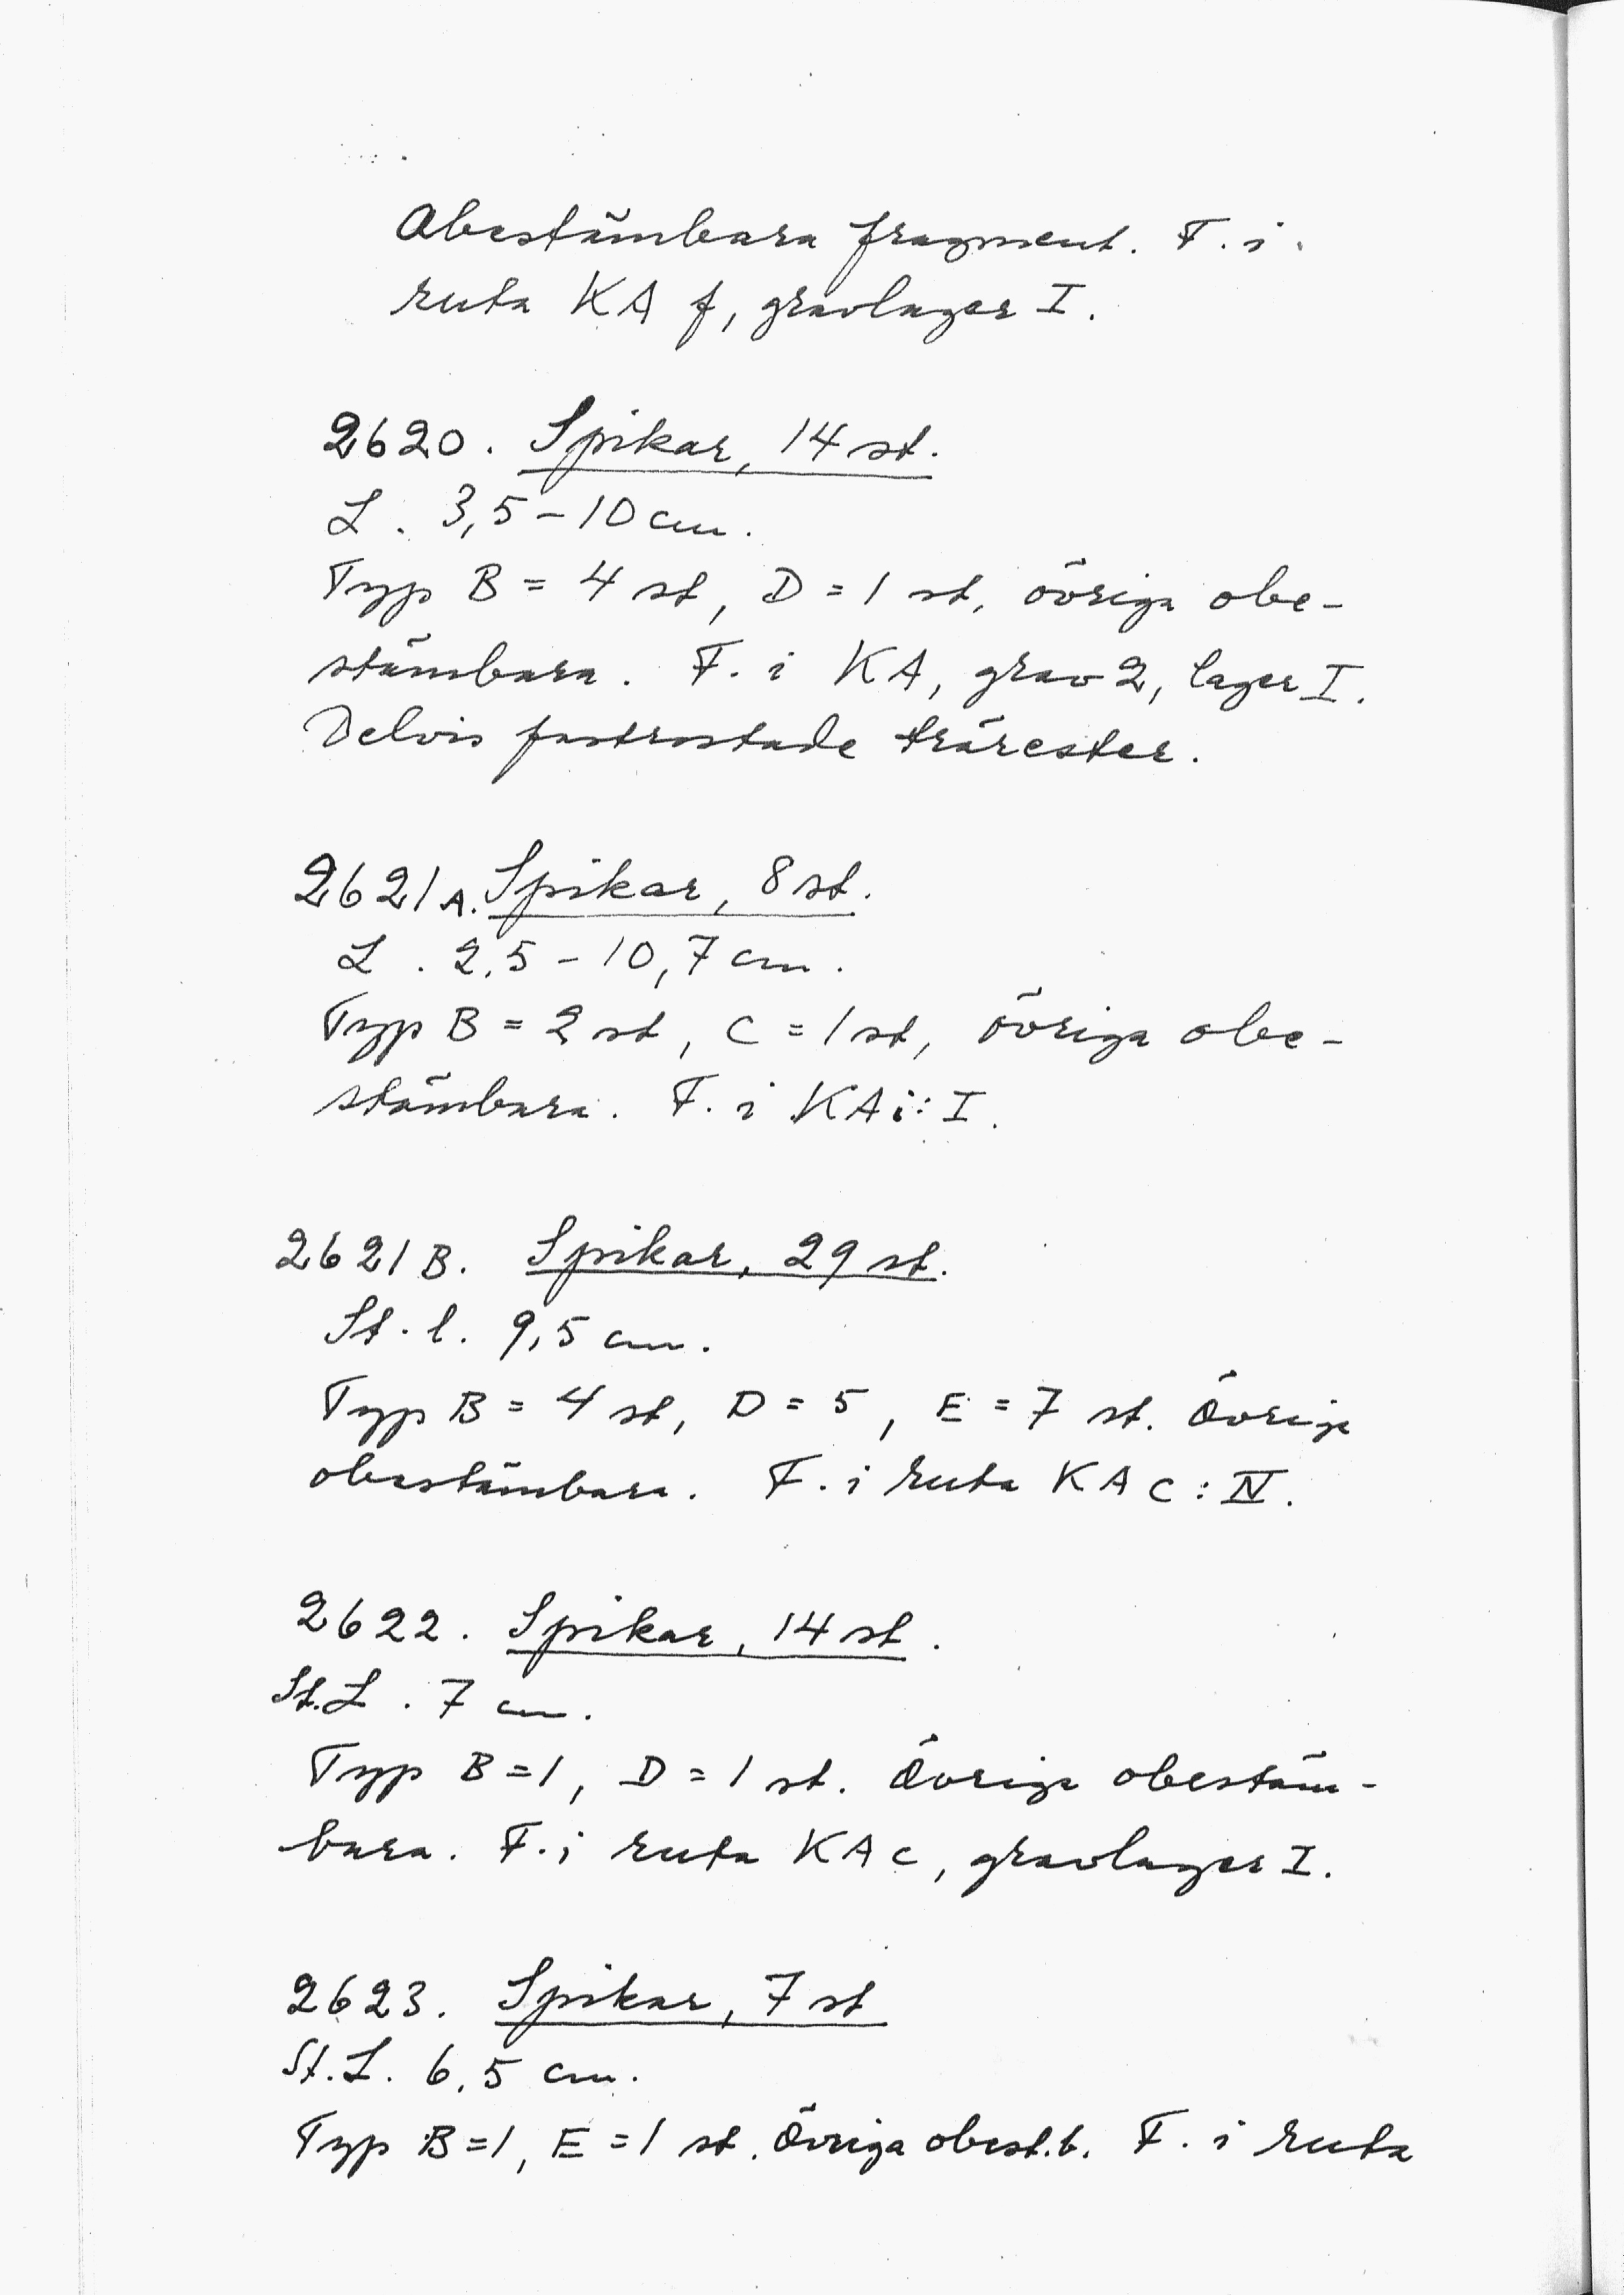 Obestämbara fragment. F. i
ruta KA f, gravlager I.
2620. Spikar, 14 st.
L. 3,5-10 cm.
Typ B = 4 st, D = 1 st, övriga obe-
stämbara. F. i KA, grav 2, lager I.
Delvis fastrostade trärester.
2621 A. Spikar, 8 st.
L. 2,5-10,7 cm.
Typ B = 2 st, C = 1 st, övriga obe-
stämbara. F. i KA i: I.
2621 B. Spikar, 29 st.
St. l. 9,5 cm.
Typ B = 4 st, D = 5, E = 7 st. Övriga
obestämbara. F. i ruta KA c: IV.
2622. Spikar, 14 st.
St. L. 7 cm.
Typ B = 1, D = 1 st. Övriga obestäm-
bara. F. i ruta KA c, gravlager I.
2623. Spikar, 7 st
St. L. 6,5 cm.
Typ B = 1, E = 1 st. Övriga obest.b. F. i ruta